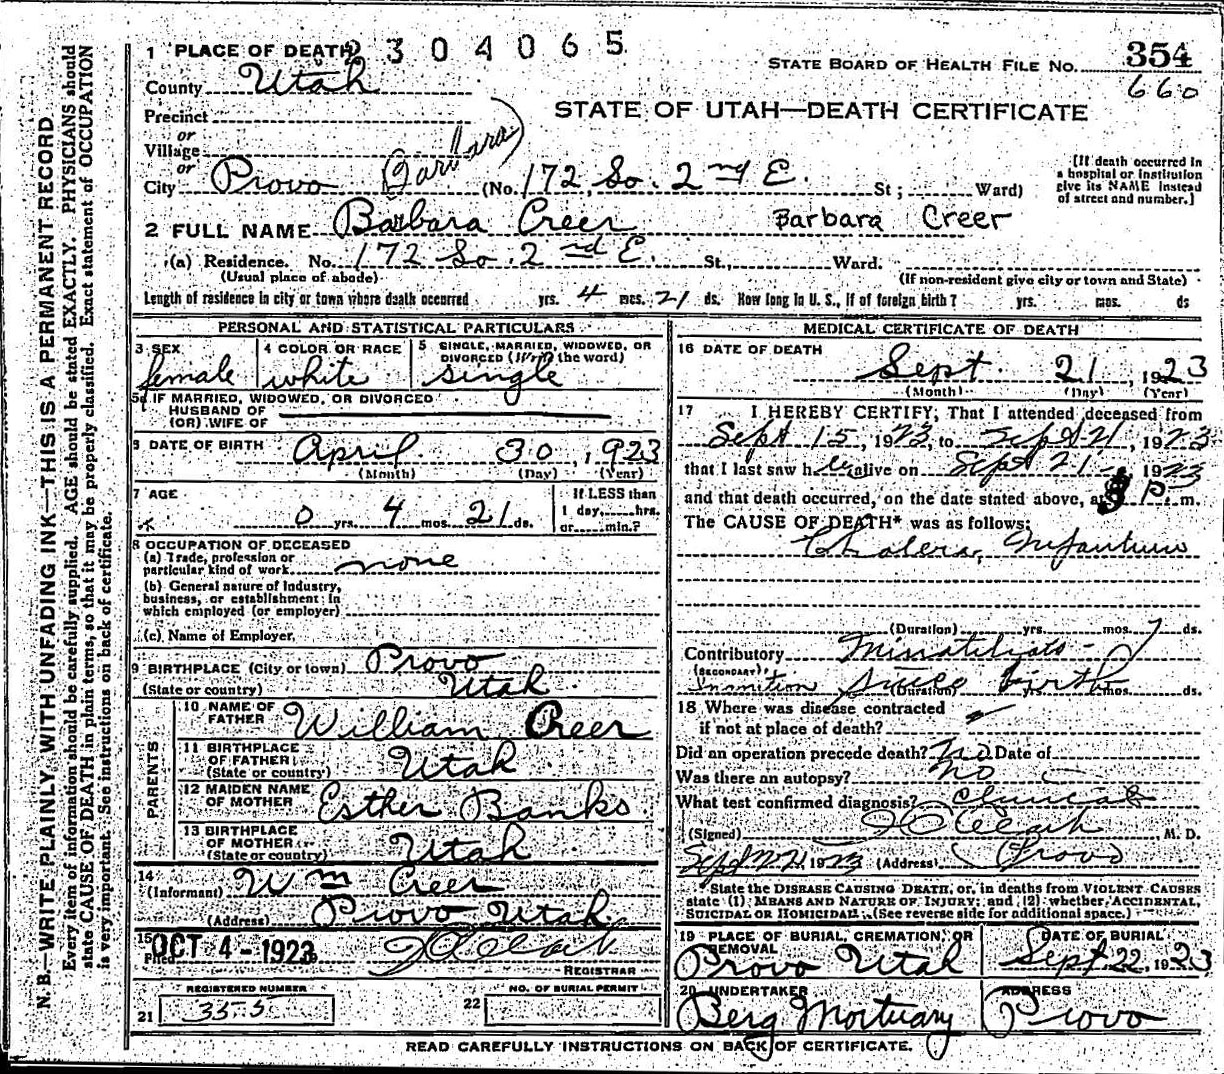 2304065
1 PLACE OF DEATH
STATE BOARD OF HEALTH FILE NO. 354
660
County Utah
STATE OF UTAH—DEATH CERTIFICATE
Precinct
or
Village
or
(Barbara)
City Provo (No. 172 So. 2nd E. St; Ward)
[If death occurred in a hospital or institution give its NAME instead of street and number.]
2 FULL NAME Barbara Creer Barbara Creer
(a) Residence. No. 172 So. 2nd E. St., Ward.
(Usual place of abode)
(If non-resident give city or town and State)
Length of residence in city or town where death occurred yrs. 4 mos. 21 ds. How long in U. S., if of foreign birth? yrs. mos. ds
PERSONAL AND STATISTICAL PARTICULARS
3 SEX
female
4 COLOR OR RACE
white
5 SINGLE, MARRIED, WIDOWED, OR DIVORCED (Write the word)
single
5a IF MARRIED, WIDOWED, OR DIVORCED
HUSBAND OF
(OR) WIFE OF
6 DATE OF BIRTH April 30, 1923
(Month) (Day) (Year)
7 AGE
0 yrs. 4 mos. 21 ds.
If LESS than
1 day, hrs.
or min.?
8 OCCUPATION OF DECEASED
(a) Trade, profession or
particular kind of work none
(b) General nature of industry,
business, or establishment in
which employed (or employer)
(c) Name of Employer,
9 BIRTHPLACE (City or town) Provo
(State or country) Utah
PARENTS
10 NAME OF FATHER William Creer
11 BIRTHPLACE OF FATHER (State or country) Utah
12 MAIDEN NAME OF MOTHER Esther Banks
13 BIRTHPLACE OF MOTHER (State or country) Utah
14
(Informant) Wm Creer
(Address) Provo Utah
15
Filed OCT 4 - 1923
REGISTRAR
REGISTERED NUMBER
21 335
NO. OF BURIAL PERMIT
22
MEDICAL CERTIFICATE OF DEATH
16 DATE OF DEATH
Sept. 21, 1923
(Month) (Day) (Year)
17 I HEREBY CERTIFY, That I attended deceased from
Sept 15, 1923, to Sept 21, 1923
that I last saw her alive on Sept 21 1923
and that death occurred, on the date stated above, at P. m.
The CAUSE OF DEATH* was as follows:
Cholera Infantum
(Duration) yrs. mos. 7 ds.
Contributory
(SECONDARY)
Inanition since birth
(Duration) mos. ds.
18 Where was disease contracted
if not at place of death?
Did an operation precede death? no Date of
Was there an autopsy? no
What test confirmed diagnosis? Clinical
(Signed) M. D.
Sept 21 1923 (Address) Provo
*State the DISEASE CAUSING DEATH, or, in deaths from VIOLENT CAUSES
state (1) MEANS AND NATURE OF INJURY; and (2) whether ACCIDENTAL,
SUICIDAL OR HOMICIDAL. (See reverse side for additional space.)
19 PLACE OF BURIAL, CREMATION, OR REMOVAL
Provo Utah
DATE OF BURIAL
Sept 22, 1923
20 UNDERTAKER
Berg Mortuary
ADDRESS
Provo
READ CAREFULLY INSTRUCTIONS ON BACK OF CERTIFICATE.
N. B. WRITE PLAINLY WITH UNFADING INK—THIS IS A PERMANENT RECORD
Every item of information should be carefully supplied. AGE should be stated EXACTLY. PHYSICIANS should
state CAUSE OF DEATH in plain terms, so that it may be properly classified. Exact statement of OCCUPATION
is very important. See instructions on back of certificate.